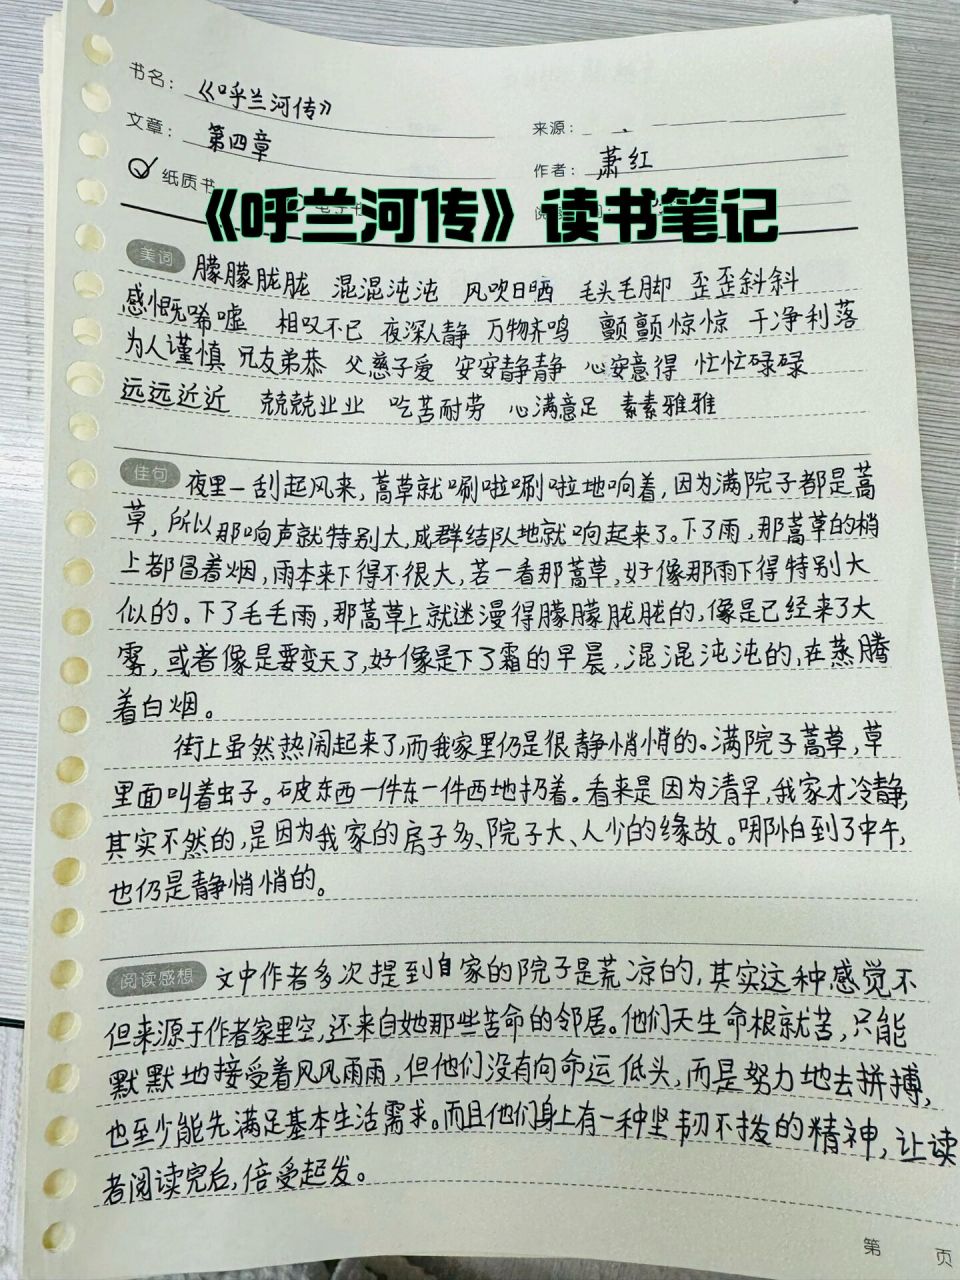 书名： 《呼兰河传》
来源：
文章： 第四章
作者： 萧红
纸质书
《呼兰河传》读书笔记
美词 朦朦胧胧 混混沌沌 风吹日晒 毛头毛脚 歪歪斜斜
感慨唏嘘 相叹不已 夜深人静 万物齐鸣 颤颤惊惊 干净利落
为人谨慎 兄友弟恭 父慈子爱 安安静静 心安意得 忙忙碌碌
远远近近 兢兢业业 吃苦耐劳 心满意足 素素雅雅
佳句 夜里一刮起风来，蒿草就唰啦唰啦地响着，因为满院子都是蒿
草，所以那响声就特别大，成群结队地就响起来了。下了雨，那蒿草的梢
上都冒着烟，雨本来下得不很大，若一看那蒿草，好像那雨下得特别大
似的。下了毛毛雨，那蒿草上就迷漫得朦朦胧胧的，像是已经来了大
雾，或者像是要变天了，好像是下了霜的早晨，混混沌沌的，在蒸腾
着白烟。
街上虽然热闹起来了，而我家里仍是很静悄悄的。满院子蒿草，草
里面叫着虫子。破东西一件东一件西地扔着。看来是因为清早，我家才冷静，
其实不然的，是因为我家的房子多、院子大、人少的缘故。哪怕到了中午，
也仍是静悄悄的。
阅读感想 文中作者多次提到自家的院子是荒凉的，其实这种感觉不
但来源于作者家里空，还来自她那些苦命的邻居。他们天生命根就苦，只能
默默地接受着风风雨雨，但他们没有向命运低头，而是努力地去拼搏，
也至少能先满足基本生活需求。而且他们身上有一种坚韧不拨的精神，让读
者阅读完后，倍受起发。
第 页